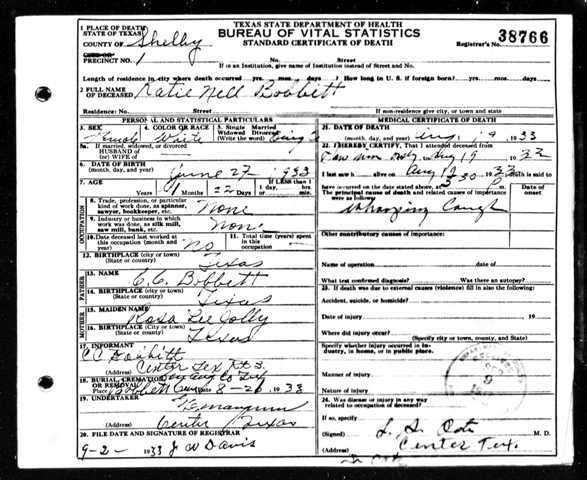 TEXAS STATE DEPARTMENT OF HEALTH
BUREAU OF VITAL STATISTICS
STANDARD CERTIFICATE OF DEATH
38766
Registrar's No.
1 PLACE OF DEATH
STATE OF TEXAS
COUNTY OF Shelby
CITY OR
PRECINCT NO. 1
No. Street
If in an Institution, give name of Institution instead of Street and No.
Length of residence in city where death occurred yrs. mos. days ? How long in U. S. if foreign born? yrs. mos. days.
2 FULL NAME
OF DECEASED Katie Nell Bobbitt
Residence: No. Street
If non-residence give city, or town and state
PERSONAL AND STATISTICAL PARTICULARS
3. SEX
Female
4. COLOR OR RACE
White
5. Single Married
Widowed Divorced
5a. If married, widowed, or divorced
HUSBAND OF
(or) WIFE OF
6. DATE OF BIRTH
(month, day, and year) June 27 1933
7. AGE
Years 1 Months 22 Days
If LESS than
1 day,
hrs.
or min.
OCCUPATION
8. Trade, profession, or particular
kind of work done, as spinner,
sawyer, bookkeeper, etc. None
9. Industry or business in which
work was done, as silk mill,
saw mill, bank, etc. None
10. Date deceased last worked at
this occupation (month and
year) No
11. Total time (years)
spent in this
occupation
12. BIRTHPLACE (city or town)
(State or country) Texas
FATHER
13. NAME
C. C. Bobbett
14. BIRTHPLACE (city or town)
(State or country) Texas
MOTHER
15. MAIDEN NAME
Roxa Lee Jolly
16. BIRTHPLACE (city or town)
(State or country) Texas
17. INFORMANT
C C Bobbitt
(Address) Center Tex Rt 3.
18. BURIAL, CREMATION,
OR REMOVAL
Place Bobbett Cem Date 8-20 1933
19. UNDERTAKER
(Address) Center Texas
20. FILE DATE AND SIGNATURE OF REGISTRAR
9-2- 1933 J W Davis
MEDICAL CERTIFICATE OF DEATH
21. DATE OF DEATH
(month, day, and year) Aug 19 1933
22. I HEREBY CERTIFY, That I attended deceased
from
Aug 19 1933
I last saw h alive on Aug 19 1933 Death is said to
have occurred on the date stated above, at 30 m.
The principal cause of death and related causes of importance
were as follows:
Date of
onset
Whooping Cough
Other contributory causes of importance:
Name of operation date of
What test confirmed diagnosis? Was there an autopsy?
23. If death was due to external causes (violence) fill in also the following:
Accident, suicide, or homicide?
Date of injury 19
Where did injury occur?
(Specify city or town, county and State)
Specify whether injury occurred in in-
dustry, in home, or in public place.
Manner of injury
Nature of injury
24. Was disease or injury in any way
related to occupation of deceased?
If so, specify
(Signed) M. D.
(Address) Center Tex.